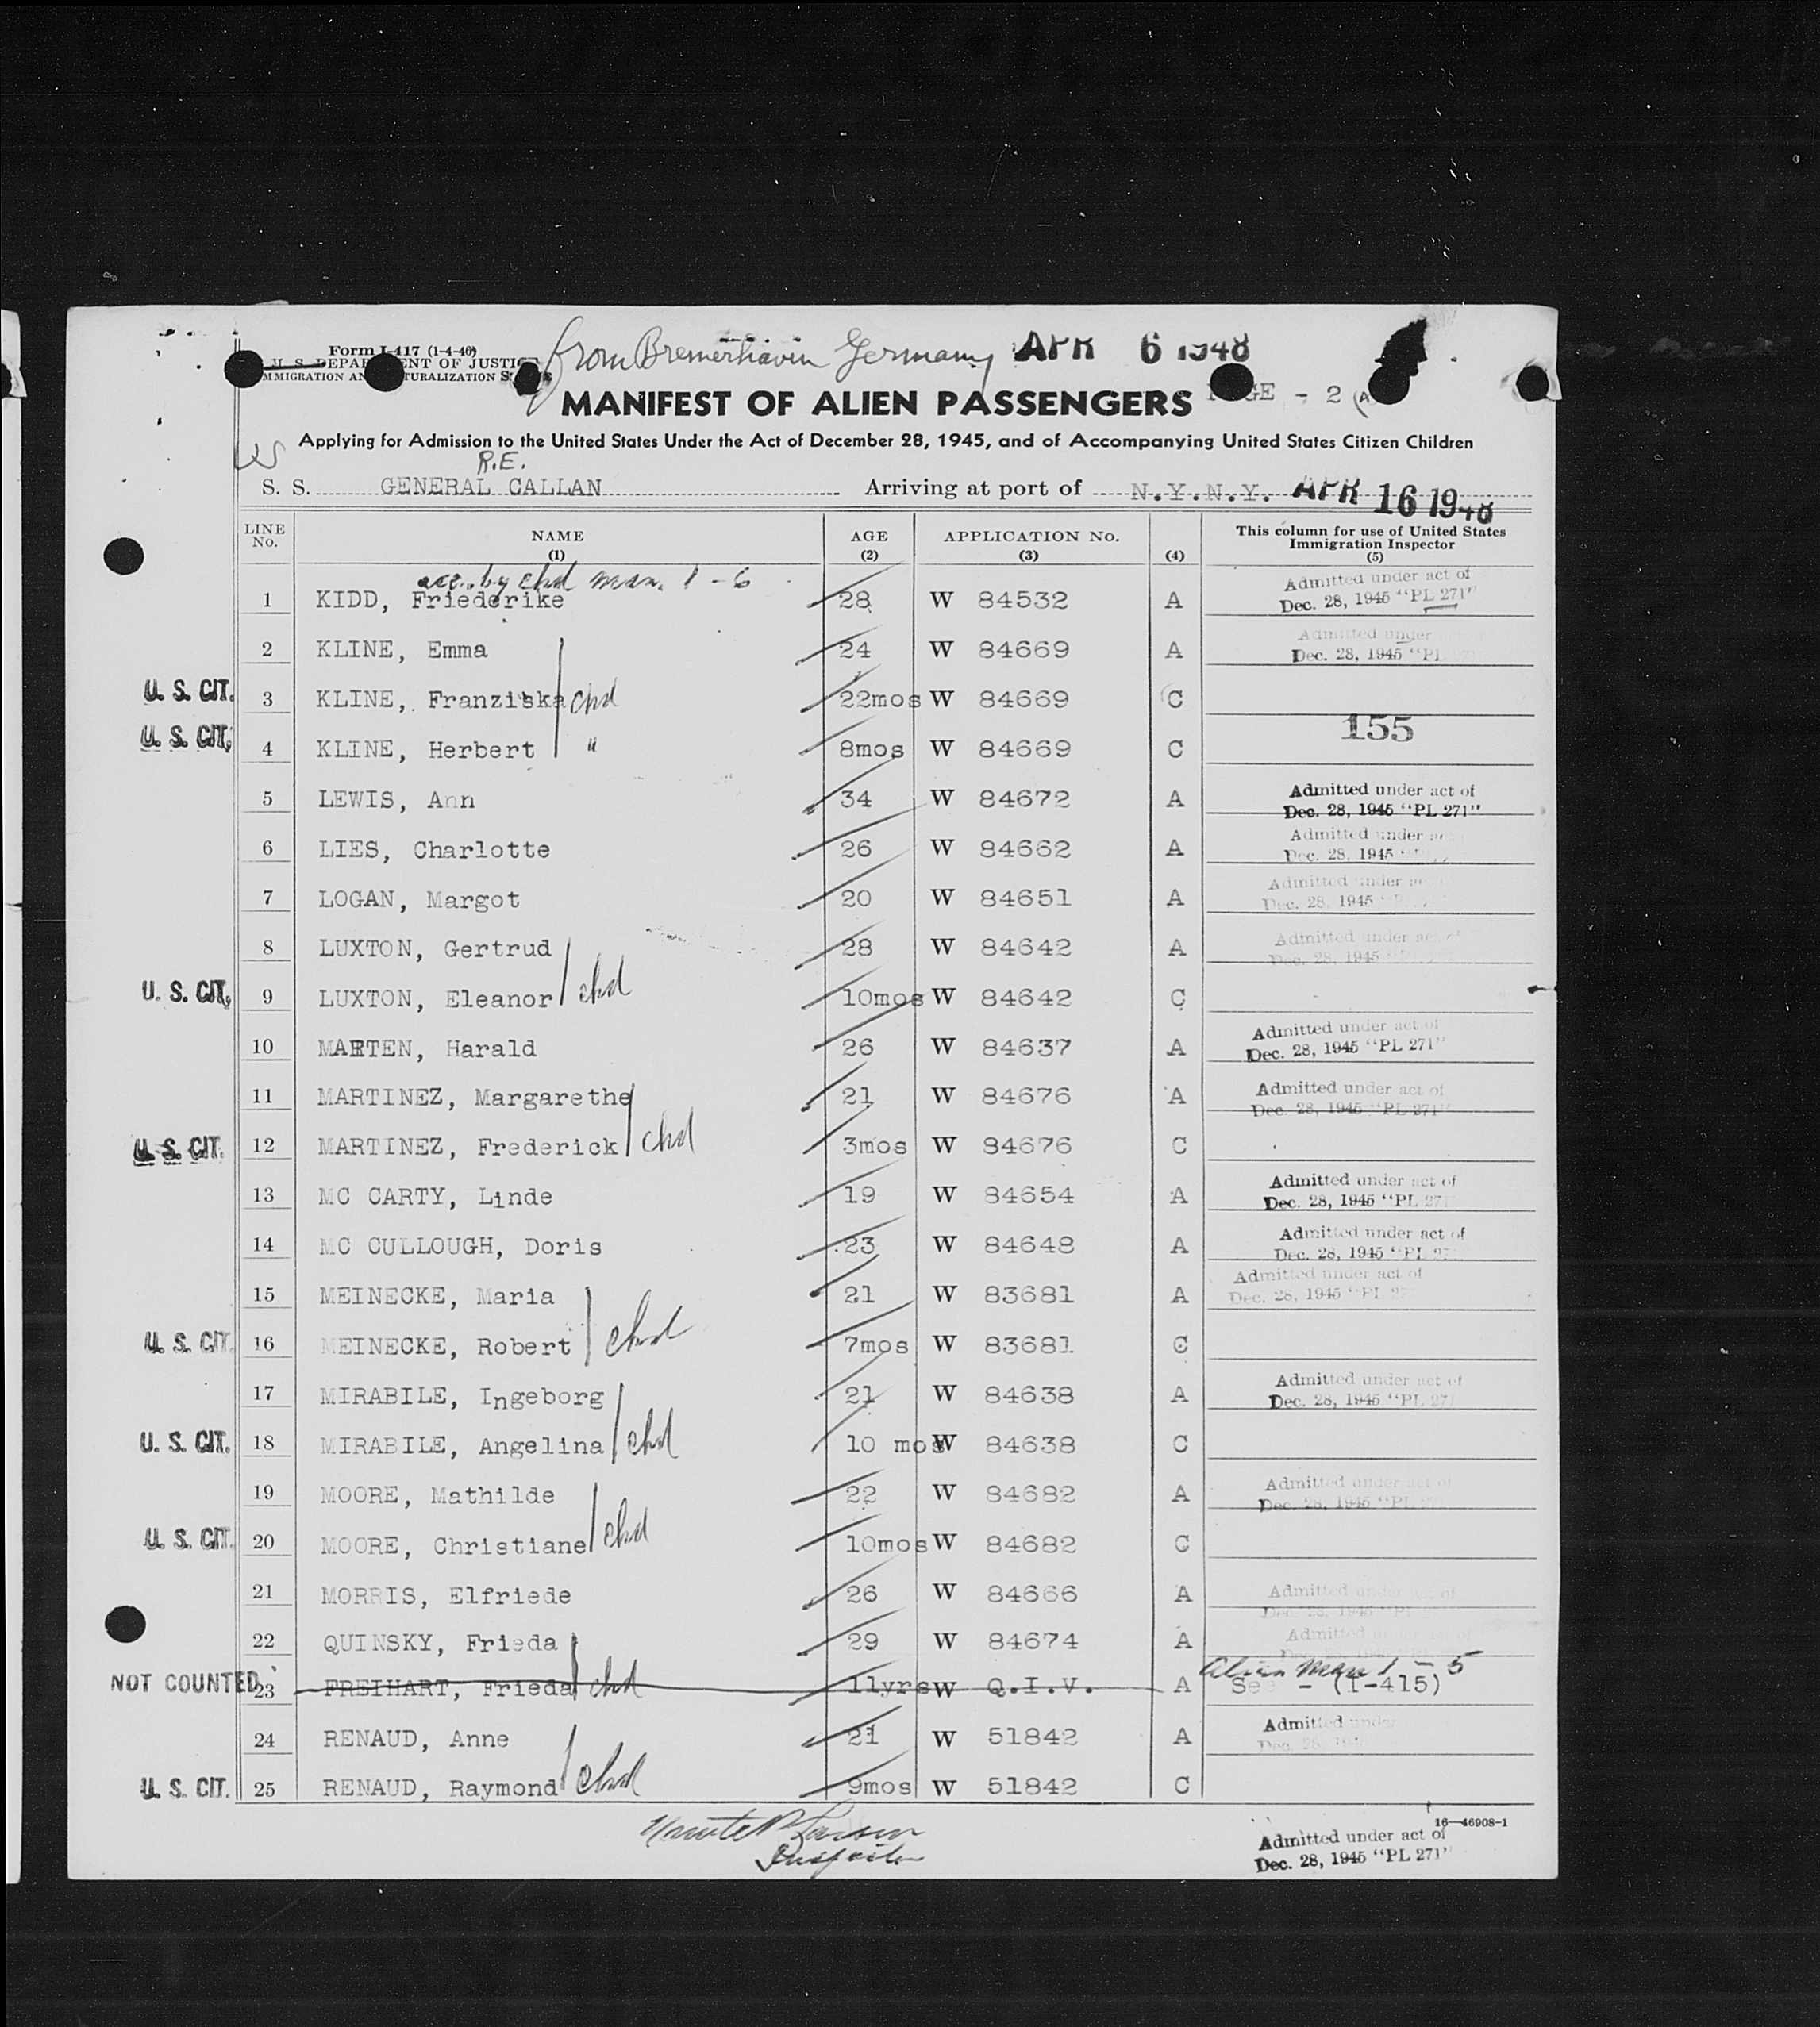 Form I-417 (1-4-46)
from Bremerhaven Germany APR 6 1948
U. S. DEPARTMENT OF JUSTICE
IMMIGRATION AND NATURALIZATION
MANIFEST OF ALIEN PASSENGERS PAGE - 2
Applying for Admission to the United States Under the Act of December 28, 1945, and of Accompanying United States Citizen Children
R.E.
S. S. GENERAL CALLAN Arriving at port of N.Y.N.Y. APR 16 1948
LINE No. NAME (1) AGE (2) APPLICATION No. (3) (4) This column for use of United States Immigration Inspector (5)
acc. by chd man. 1 - 6
1 KIDD, Friederike 28 W 84532 A Admitted under act of Dec. 28, 1945 "PL 271"
2 KLINE, Emma 24 W 84669 A Admitted under Dec. 28, 1945 "PL
U. S. CIT. 3 KLINE, Franziska chd 22mos W 84669 C
U. S. CIT. 4 KLINE, Herbert " 8mos W 84669 C 155
5 LEWIS, Ann 34 W 84672 A Admitted under act of Dec. 28, 1945 "PL 271"
6 LIES, Charlotte 26 W 84662 A Admitted under Dec. 28, 1945
7 LOGAN, Margot 20 W 84651 A Admitted under Dec. 28, 1945
8 LUXTON, Gertrud 28 W 84642 A Admitted under act of Dec. 28, 1945
U. S. CIT. 9 LUXTON, Eleanor chd 10mos W 84642 C
10 MARTEN, Harald 26 W 84637 A Admitted under act of Dec. 28, 1945 "PL 271"
11 MARTINEZ, Margarethe 21 W 84676 A Admitted under act of Dec. 28, 1945 "PL 271"
U. S. CIT. 12 MARTINEZ, Frederick chd 3mos W 84676 C
13 MC CARTY, Linde 19 W 84654 A Admitted under act of Dec. 28, 1945 "PL 271
14 MC CULLOUGH, Doris 23 W 84648 A Admitted under act of Dec. 28, 1945 "PL 27
15 MEINECKE, Maria 21 W 83681 A Admitted under act of Dec. 28, 1945 "PL 27
U. S. CIT. 16 MEINECKE, Robert chd 7mos W 83681 C
17 MIRABILE, Ingeborg 21 W 84638 A Admitted under act of Dec. 28, 1945 "PL 271
U. S. CIT. 18 MIRABILE, Angelina chd 10 mos W 84638 C
19 MOORE, Mathilde 22 W 84682 A Admitted under act of Dec. 28, 1945 "PL
U. S. CIT. 20 MOORE, Christiane chd 10mos W 84682 C
21 MORRIS, Elfriede 26 W 84666 A Admitted under act of Dec. 28, 1945 "PL
22 QUINSKY, Frieda 29 W 84674 A Admitted
NOT COUNTED 23 FREIHART, Frieda chd 11yrs W Q.I.V. A Alien Man 1 - 5 See - (I-415)
24 RENAUD, Anne 21 W 51842 A Admitted under Dec. 28, 194
U. S. CIT. 25 RENAUD, Raymond chd 9mos W 51842 C
16—46908-1
Inspector
Admitted under act of
Dec. 28, 1945 "PL 271"